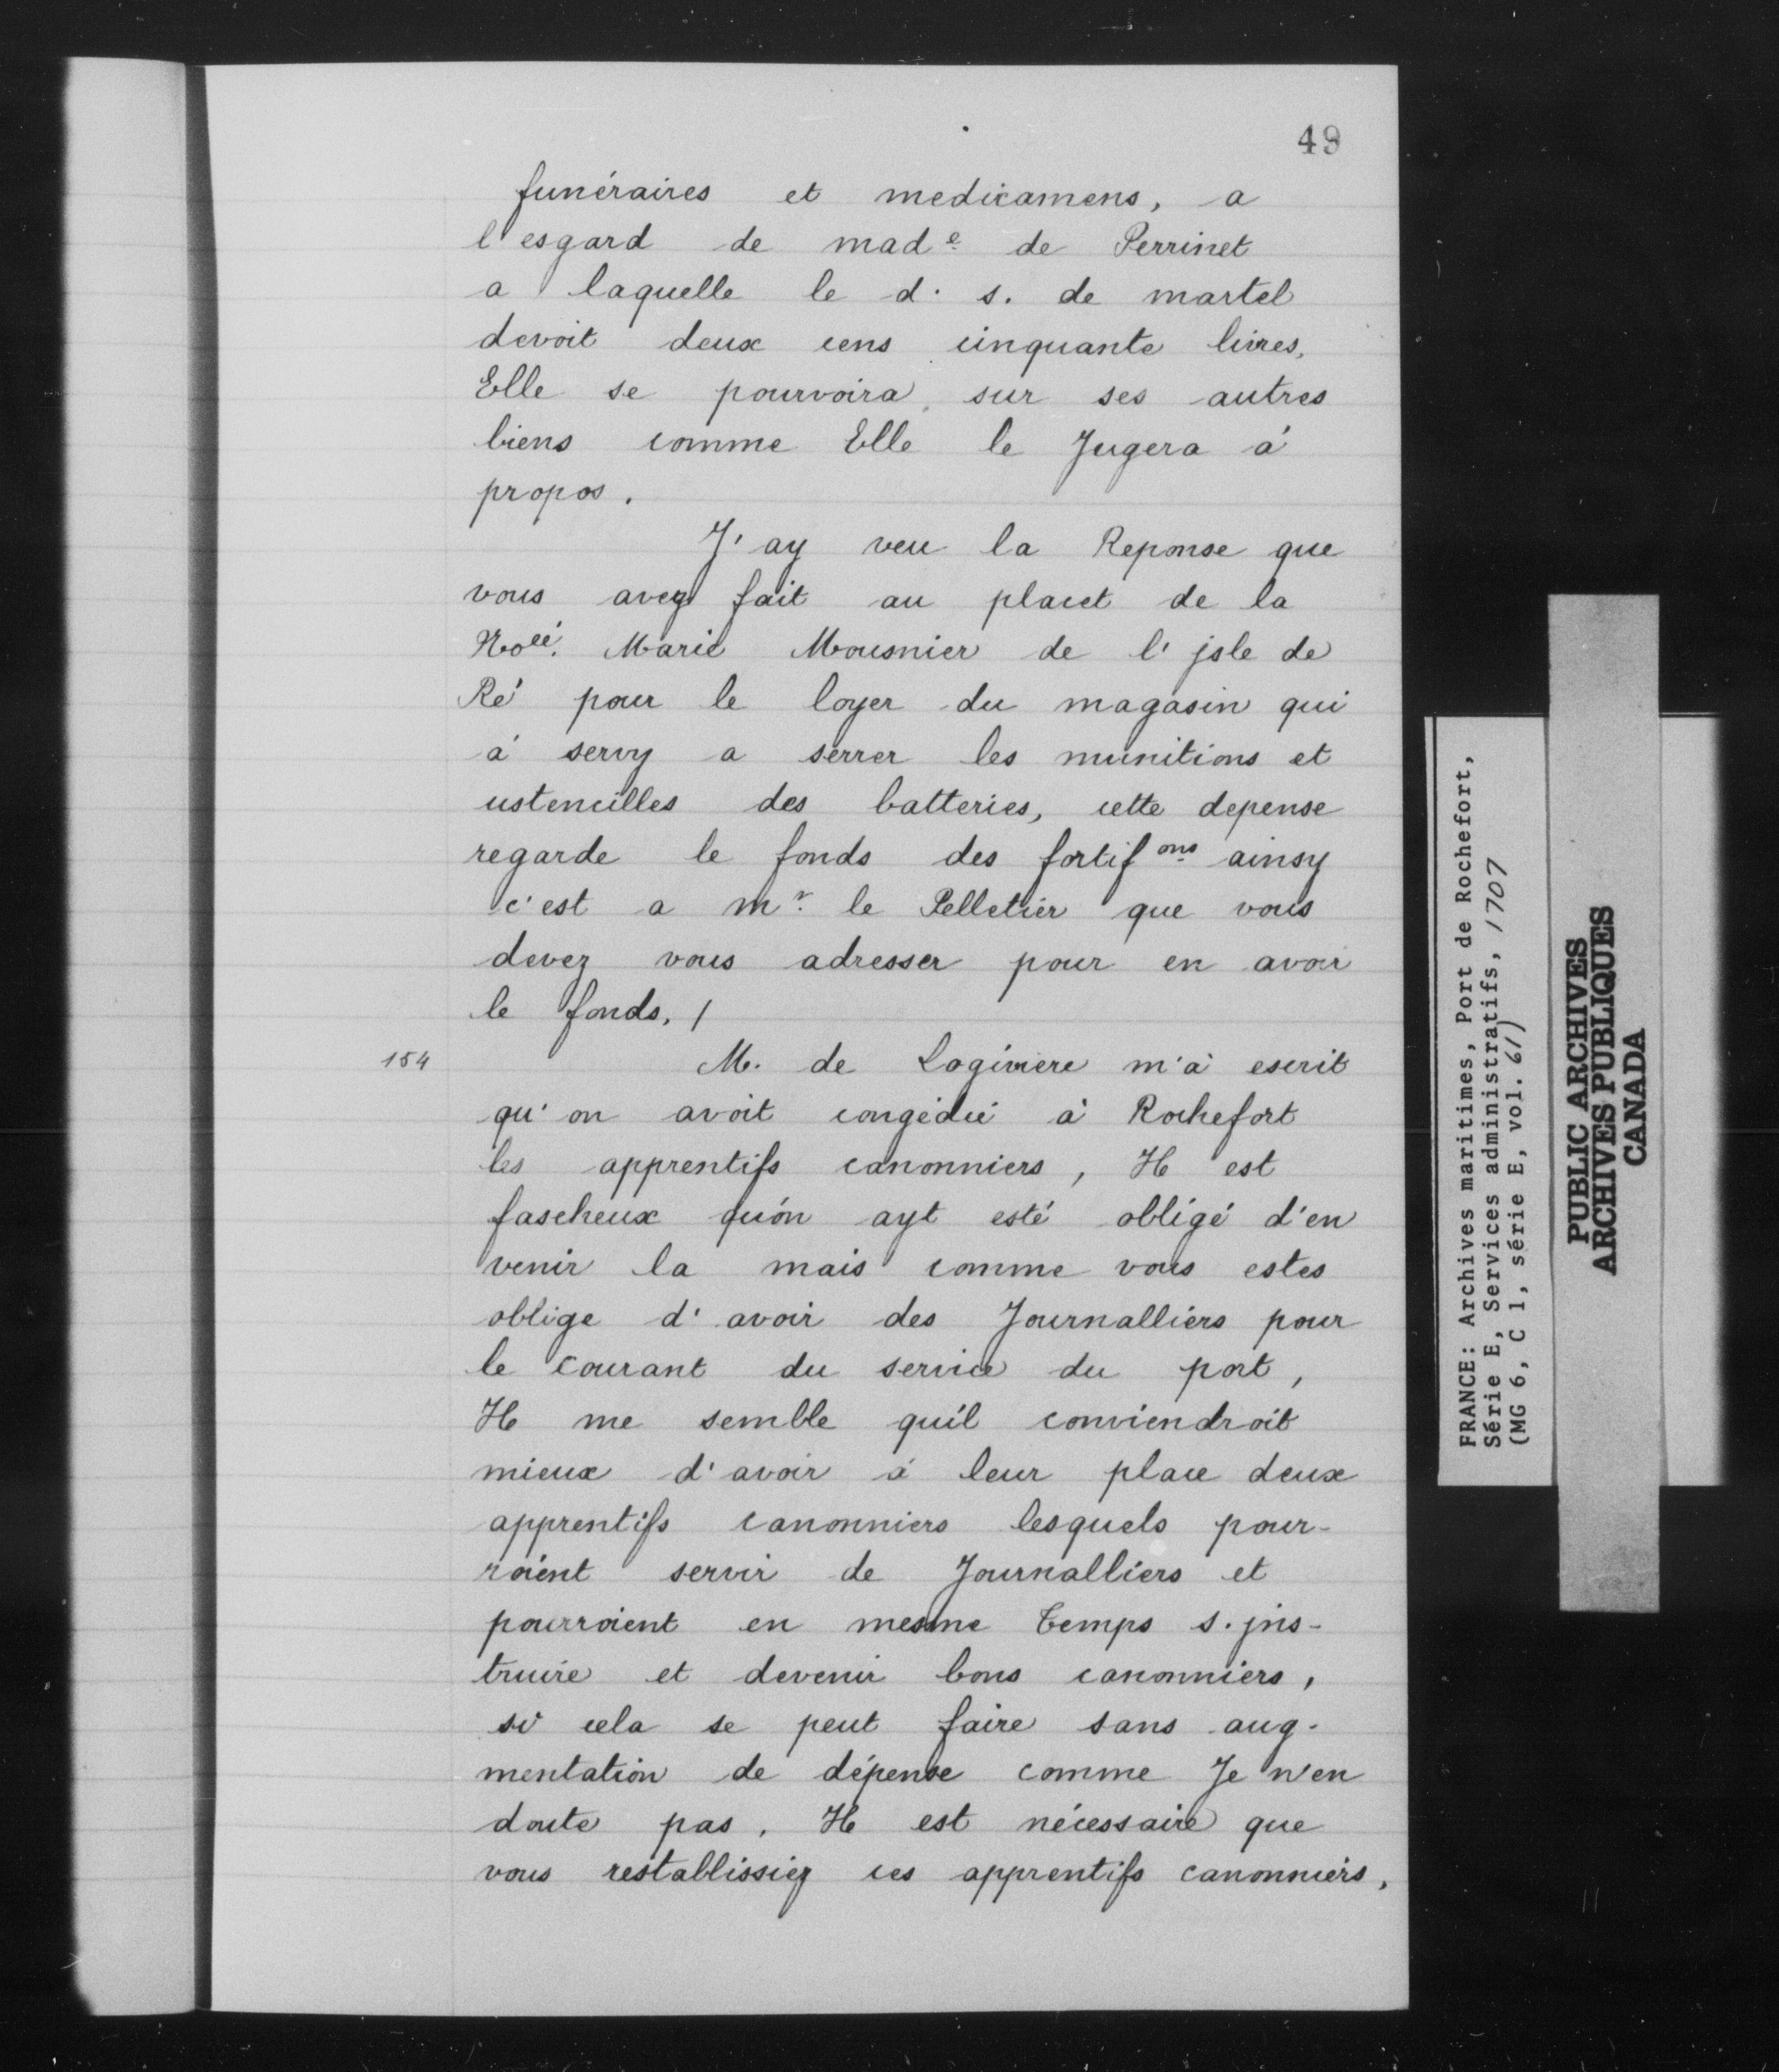 49
funéraires et medicamens, a
l'esgard de mad.e de Perrinet
a laquelle le d. s. de martel
devoit deux cens cinquante livres,
Elle se pourvoira sur ses autres
biens comme Elle le Jugera á
propos.
J'ay veu la Reponse que
vous avez fait au placet de la
Marie Mousnier de l'jsle de
Ré pour le loyer du magasin qui
á servy a serrer les munitions et
ustencilles des batteries, cette depense
regarde le fonds des fortifons ainsy
c'est a mr. le Pelletier que vous
devez vous adresser pour en avoir
le fonds. /
154
M. de Logiviere m'à escrit
qu'on avoit congédié à Rochefort
les apprentifs canonniers, Il est
fascheux qu'on ayt esté obligé d'en
venir la mais comme vous estes
oblige d'avoir des Journalliers pour
le courant du service du port,
Il me semble qu'il conviendroit
mieux d'avoir á leur place deux
apprentifs canonniers lesquels pour-
roient servir de Journalliers et
pourroient en mesme temps s. jns-
truire et devenir bons canonniers,
si cela se peut faire sans aug-
mentation de dépense comme Je n'en
doute pas. Il est nécessaire que
vous restablissiez ces apprentifs canonniers,
FRANCE: Archives maritimes, Port de Rochefort,
Série E, Services administratifs, 1707
(MG 6, C 1, série E, vol. 61)
PUBLIC ARCHIVES
ARCHIVES PUBLIQUES
CANADA